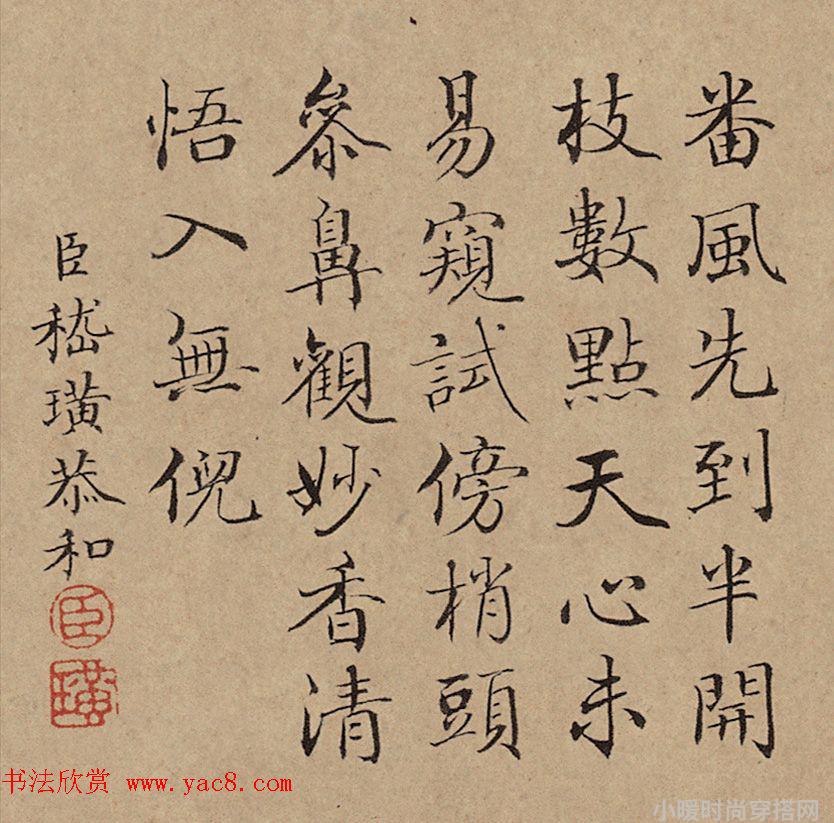 番風先到半開
枝數點天心未
易窺試傍梢頭
叅鼻觀妙香清
悟入無倪
臣嵇璜恭和
臣
璜
书法欣赏 www.yac8.com
小暖时尚穿搭网